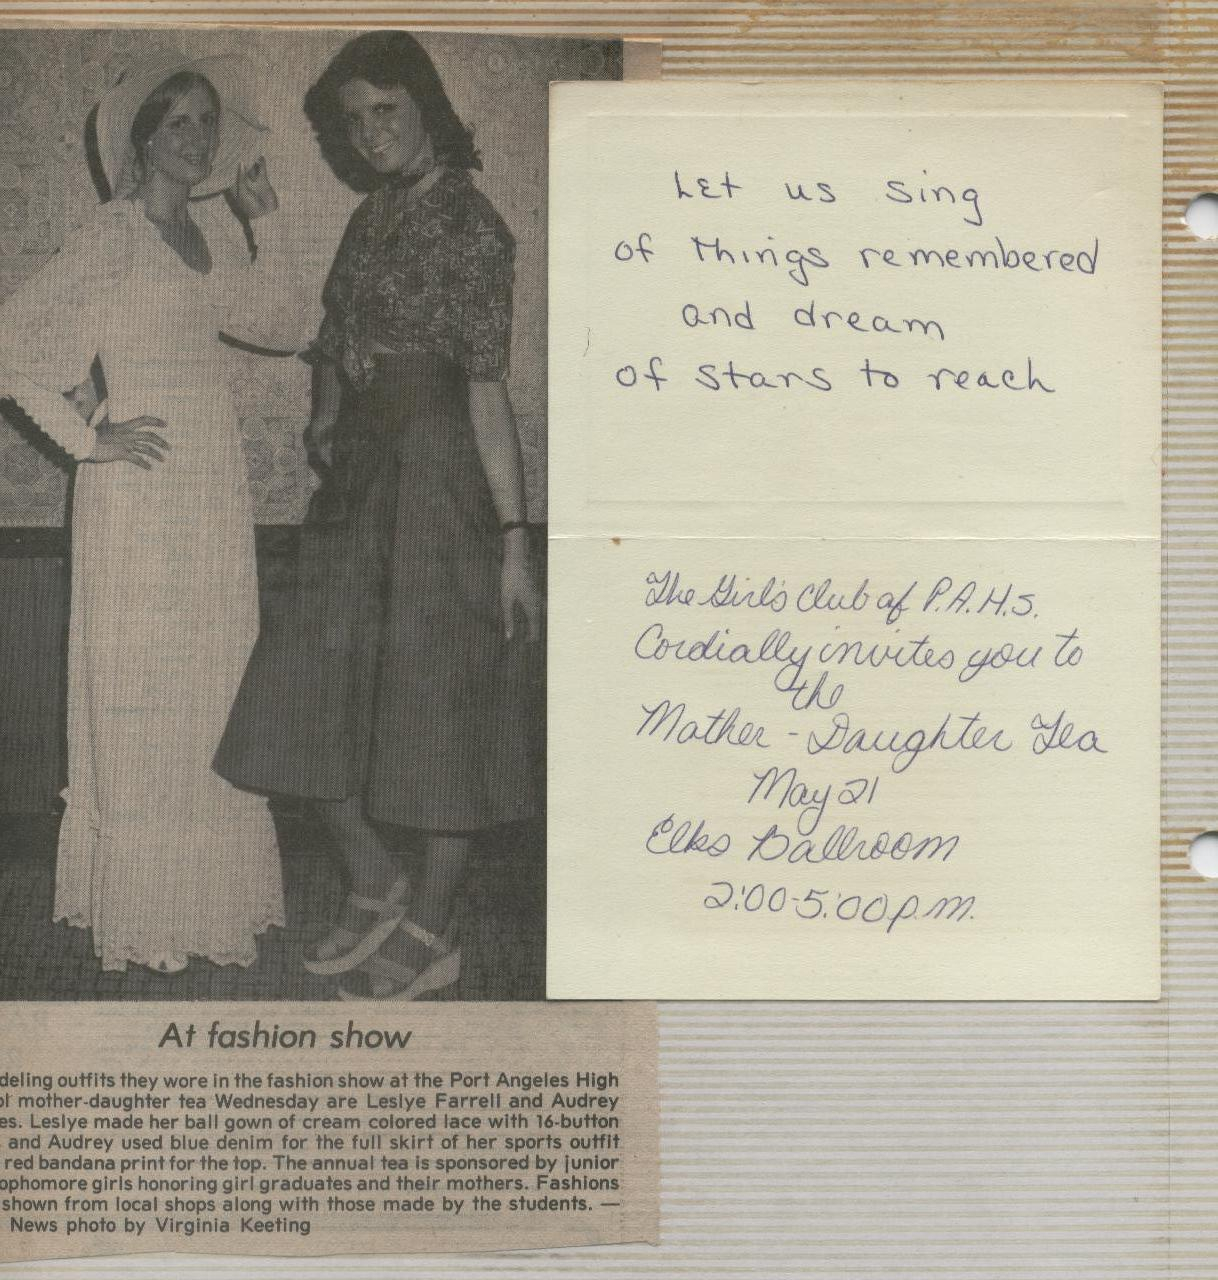 Let us sing
of things remembered
and dream
of stars to reach
The Girl's Club of P.A.H.S.
Cordially invites you to
the
Mother - Daughter Tea
May 21
Elks Ballroom
2:00-5:00 p.m.
At fashion show
deling outfits they wore in the fashion show at the Port Angeles High
ol mother-daughter tea Wednesday are Leslye Farrell and Audrey
es. Leslye made her ball gown of cream colored lace with 16-button
, and Audrey used blue denim for the full skirt of her sports outfit
red bandana print for the top. The annual tea is sponsored by junior
ophomore girls honoring girl graduates and their mothers. Fashions
shown from local shops along with those made by the students. —
News photo by Virginia Keeting